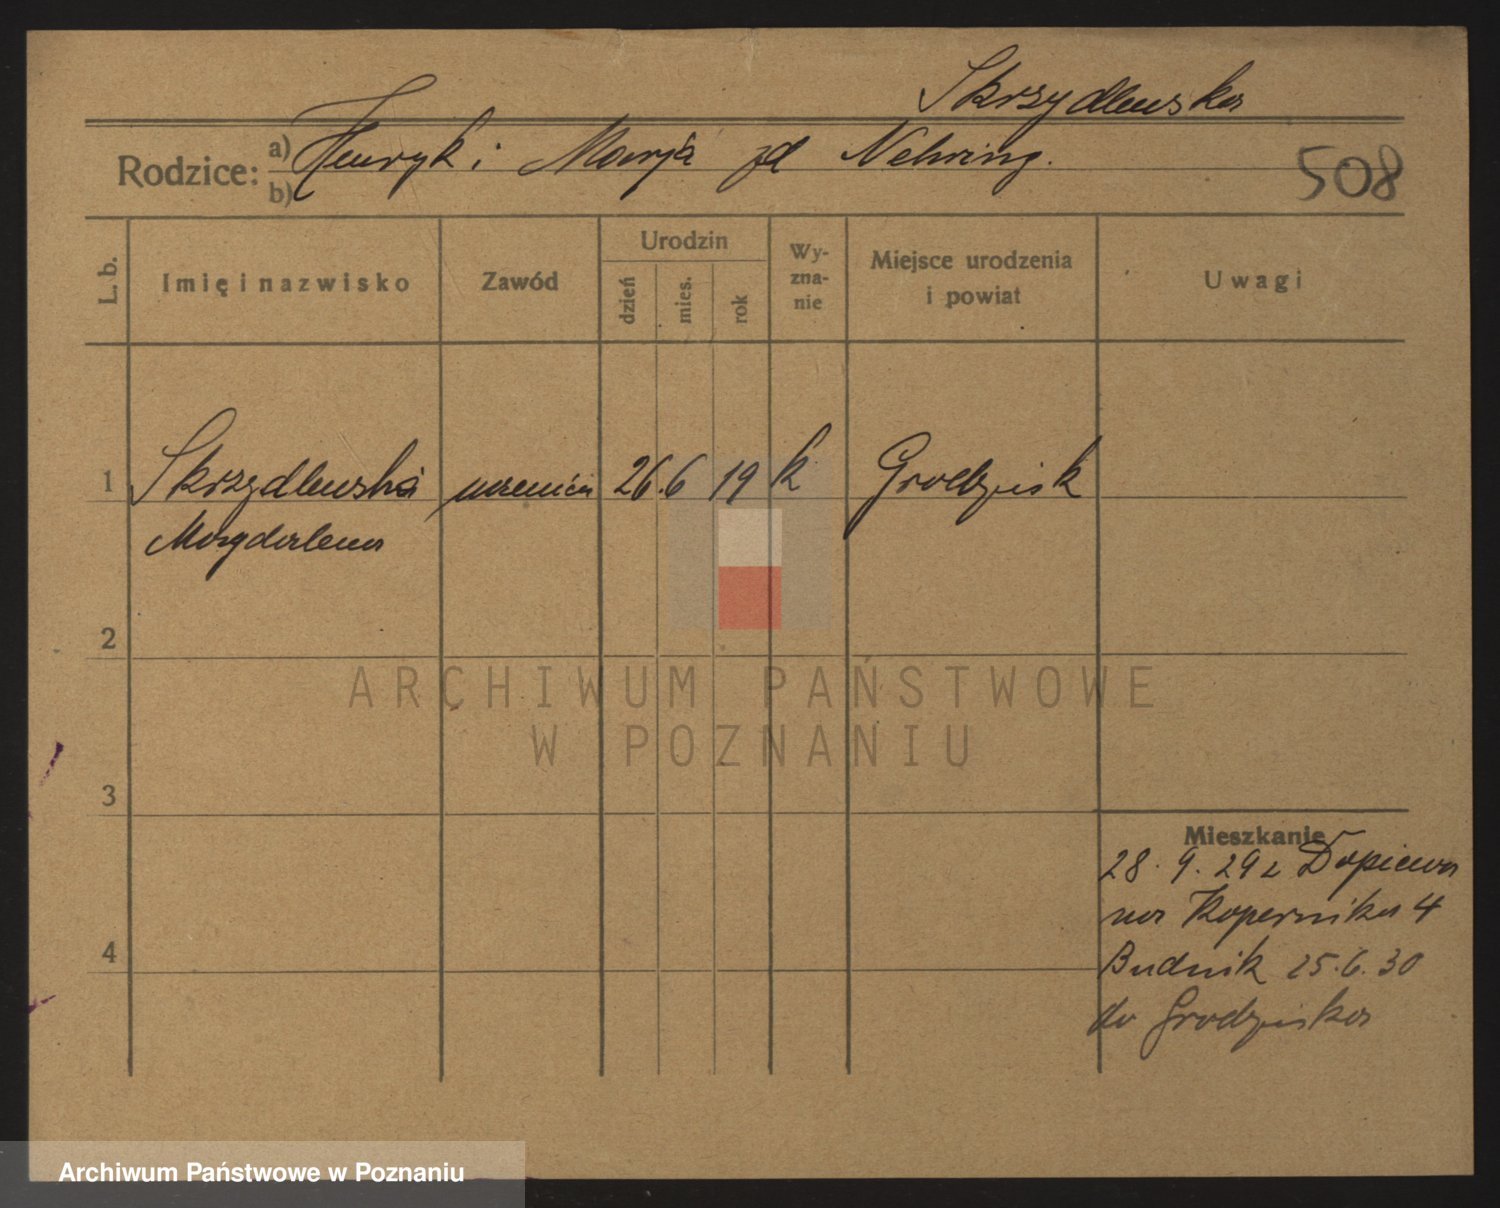 Skrzydlewska
Rodzice: a) Henryk i Marja zd Nehring.
b)
508
L. b.
Imię i nazwisko
Zawód
Urodzin
dzień
mies.
rok
Wy-
zna-
nie
Miejsce urodzenia
i powiat
Uwagi
1 Skrzydlewska uczenica 26. 6 19 k Grodzisk
Magdalena
2
3
4
Mieszkanie
28. 9. 29 z Dopiewa
na Kopernika 4
Budnik 25. 6. 30
do Grodziska
ARCHIWUM PAŃSTWOWE
W POZNANIU
Archiwum Państwowe w Poznaniu